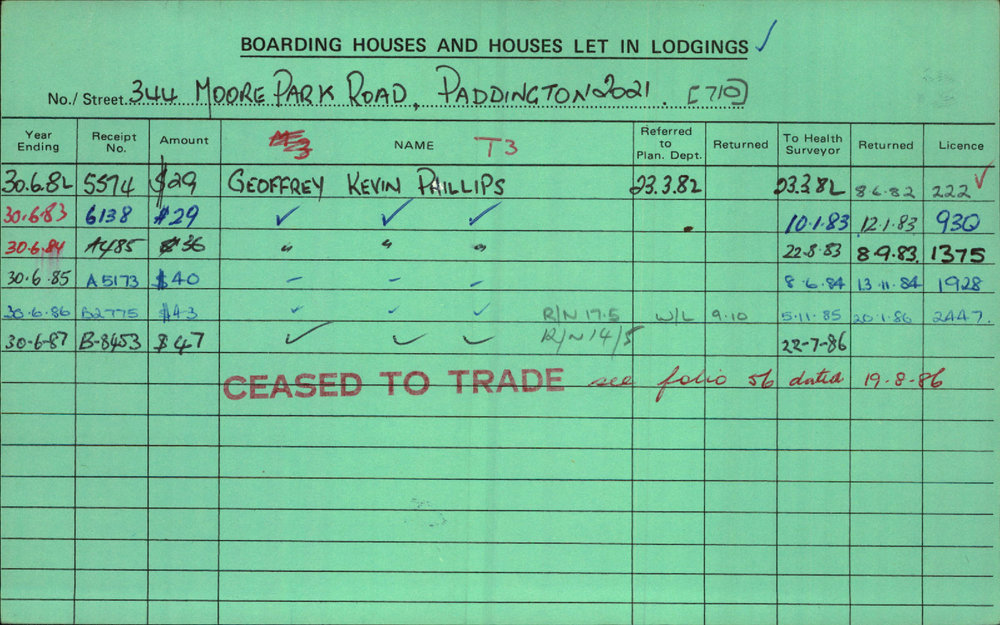 BOARDING HOUSES AND HOUSES LET IN LODGINGS ✓
No./ Street. 344 MOORE PARK ROAD, PADDINGTON 2021. [710]
Year Ending Receipt No. Amount NAME T3 Referred to Plan. Dept. Returned To Health Surveyor Returned Licence
30.6.82 5574 $29 GEOFFREY KEVIN PHILLIPS 23.3.82 23.3.82 8.6.82 222 ✓
30.6.83 6138 $29 ✓ ✓ ✓ 10.1.83 12.1.83 930
30.6.84 A485 $36 " " " 22.8.83 8.9.83. 1375
30.6.85 A5173 $40 – – – 8.6.84 13.11.84 1928
30.6.86 B2775 $43 ✓ ✓ ✓ R/N 17.5 W/L 9.10 5.11.85 20.1.86 2447.
30-6-87 B-8453 $47 ✓ ✓ ✓ R/N 14/5 22-7-86
CEASED TO TRADE see folio 56 dated 19.8.86